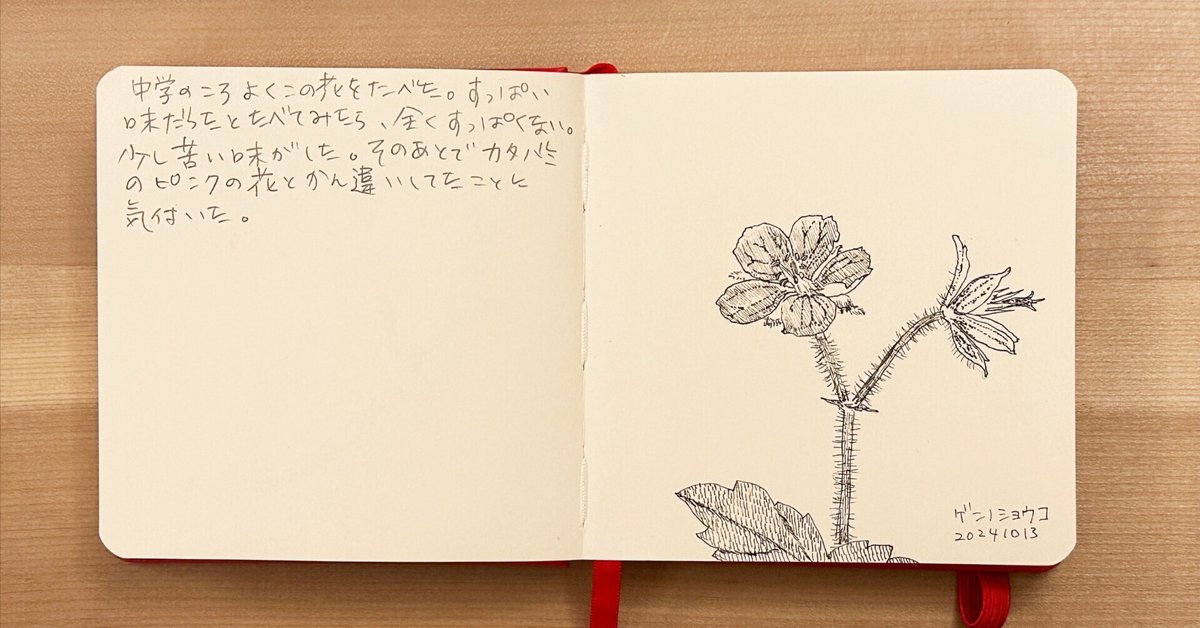 中学のころよくこの花をたべた。すっぱい
味だったとたべてみたら、全くすっぱくない。
少し苦い味がした。そのあとでカタバミ
のピンクの花とかん違いしてたことに
気付いた。
ゲンノショウコ
20241013